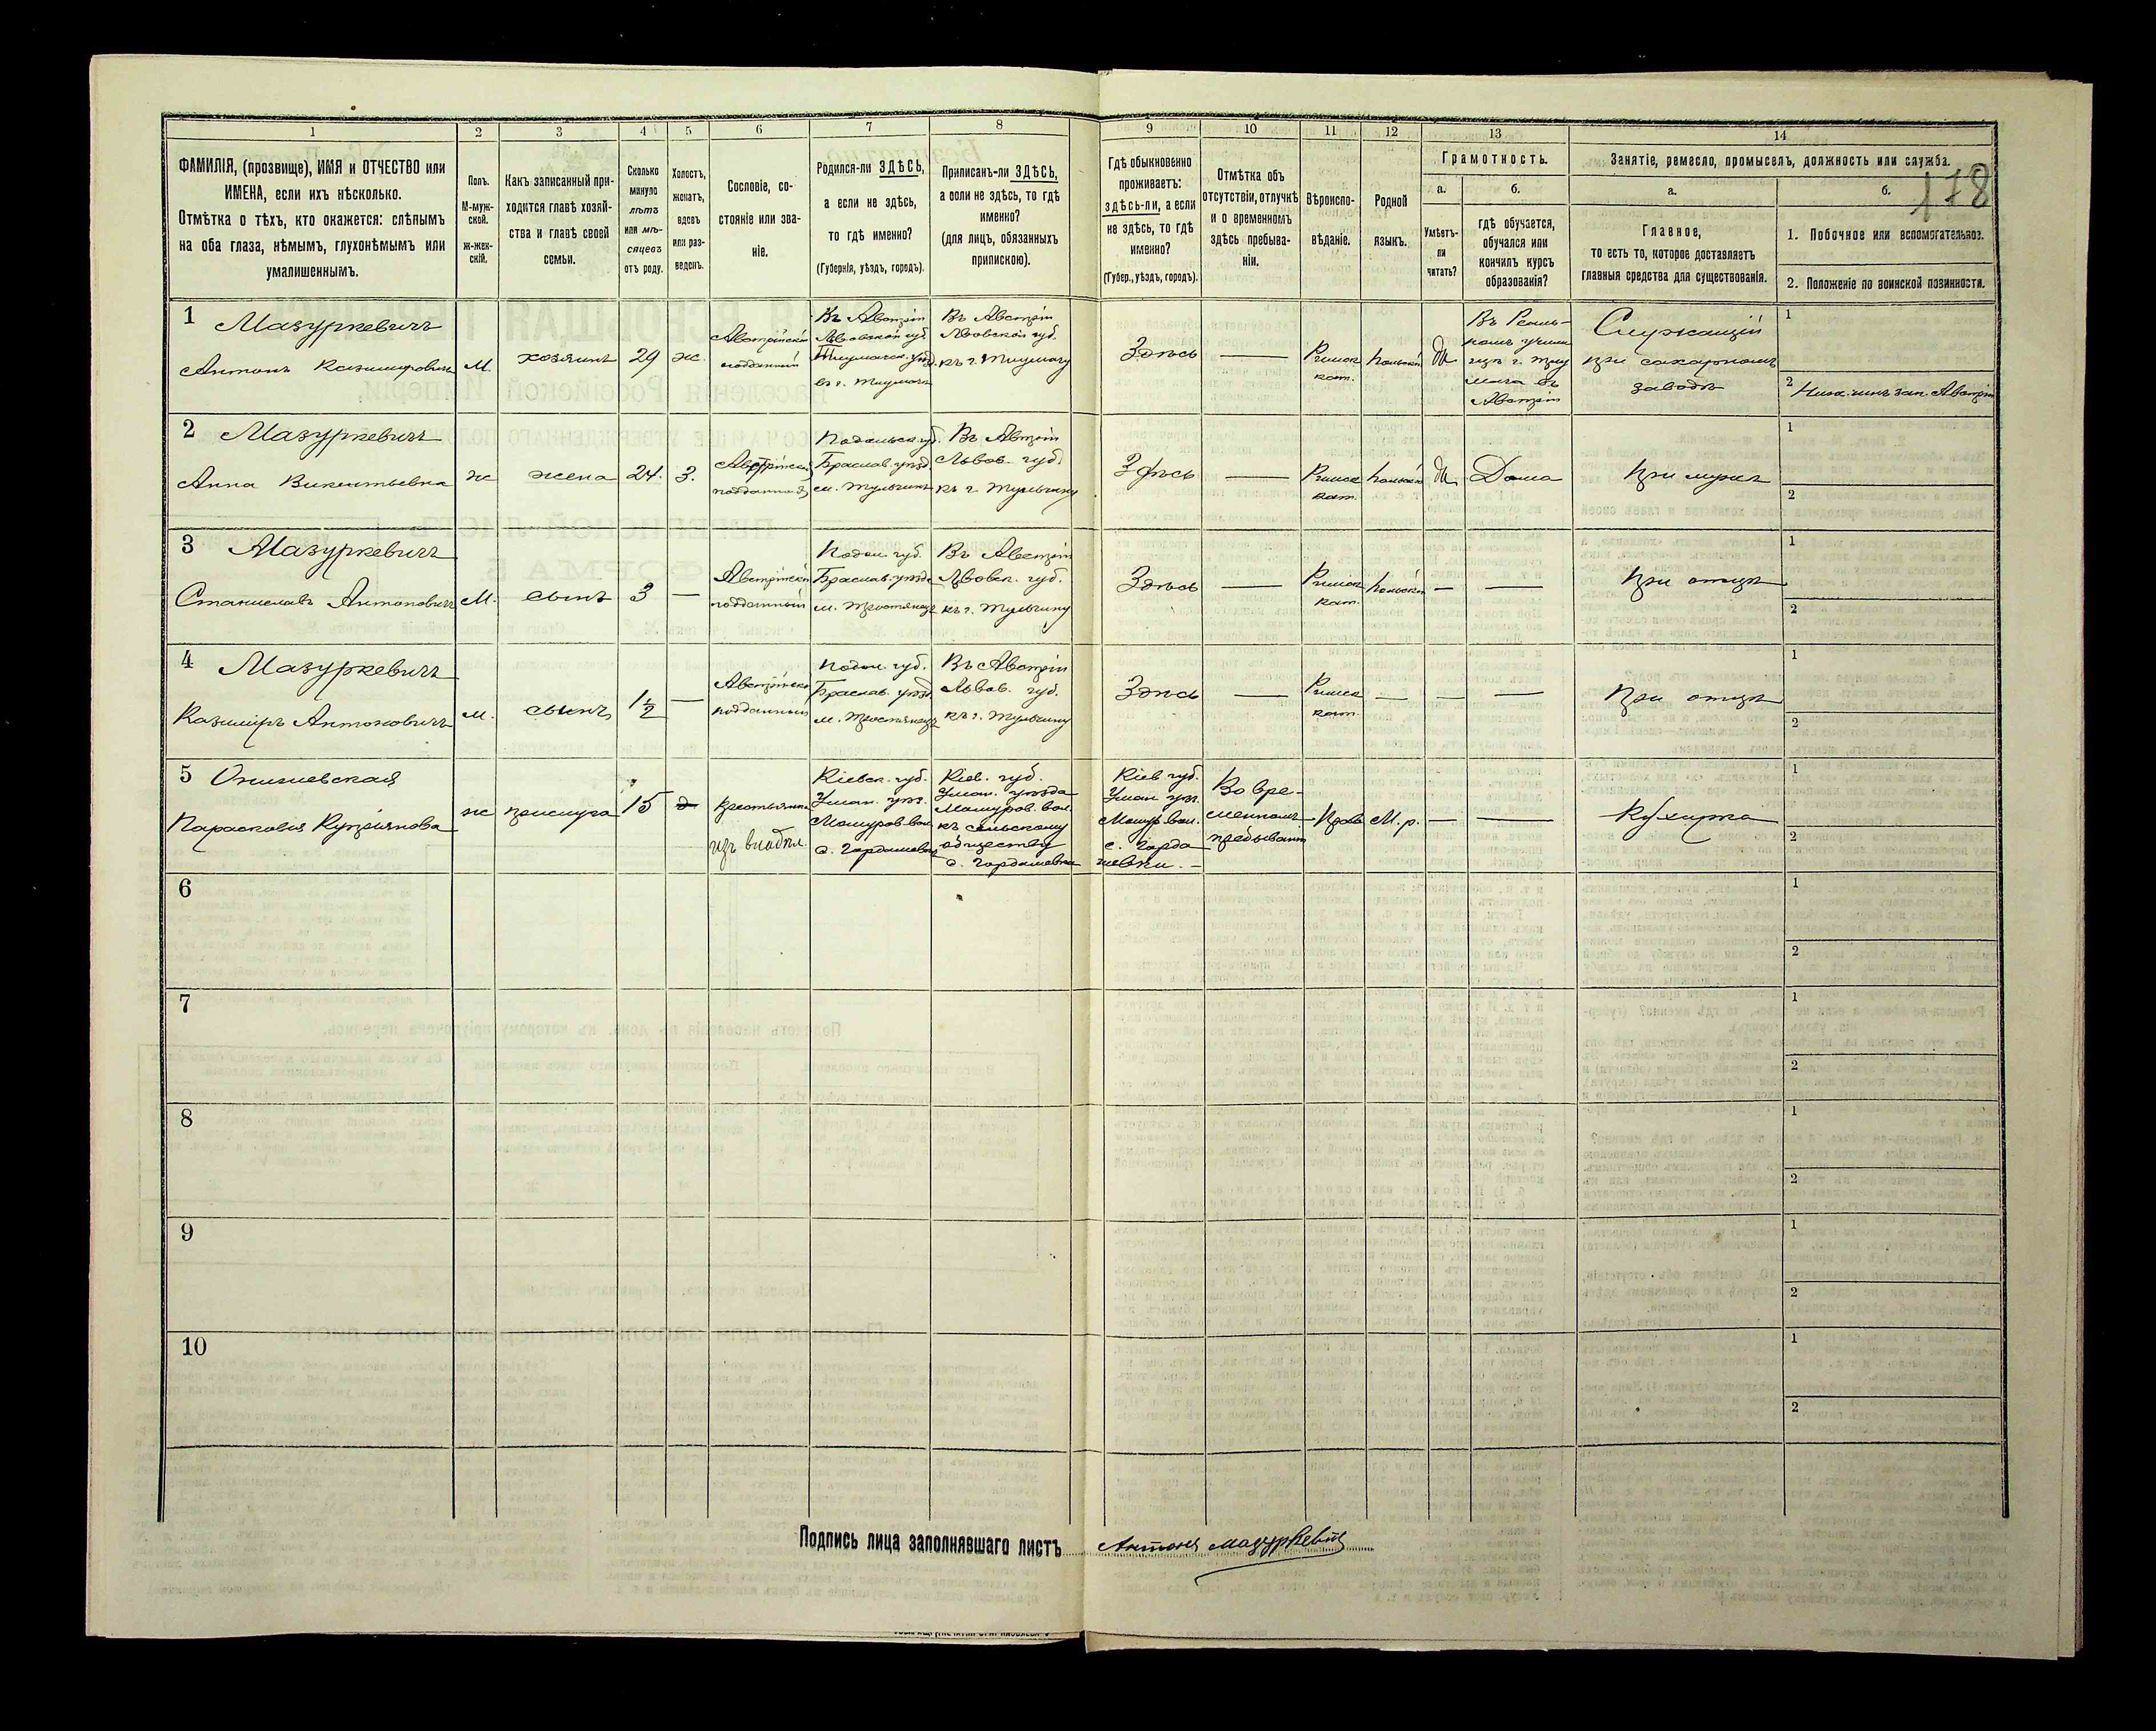 1 2 3 4 5 6 7 8 9 10 11 12 13 14
ФАМИЛІЯ, (прозвище), ИМЯ и ОТЧЕСТВО или
ИМЕНА, если ихъ нѣсколько.
Отмѣтка о тѣхъ, кто окажется: слѣпымъ
на оба глаза, нѣмымъ, глухонѣмымъ или
умалишеннымъ.
Полъ.
М-муж-
ской.
ж-жен-
скій.
Какъ записанный при-
ходится главѣ хозяй-
ства и главѣ своей
семьи.
Сколько
минуло
лѣтъ
или мѣ-
сяцевъ
отъ роду.
Холостъ,
женатъ,
вдовъ
или раз-
веденъ.
Сословіе, со-
стояніе или зва-
ніе.
Родился-ли ЗДѢСЬ,
а если не здѣсь,
то гдѣ именно?
(Губернія, уѣздъ, городъ).
Приписанъ-ли ЗДѢСЬ,
а если не здѣсь, то гдѣ
именно?
(для лицъ, обязанныхъ
припискою).
Гдѣ обыкновенно
проживаетъ:
здѣсь-ли, а если
не здѣсь, то гдѣ
именно?
(Губер., уѣздъ, городъ).
Отмѣтка объ
отсутствіи, отлучкѣ
и о временномъ
здѣсь пребыва-
ніи.
Вѣроиспо-
вѣданіе.
Родной
языкъ.
Грамотность.
а.
Умѣетъ-
ли
читать?
б.
гдѣ обучается,
обучался или
кончилъ курсъ
образованія?
Занятіе, ремесло, промыселъ, должность или служба.
178
а.
Главное,
то есть то, которое доставляетъ
главныя средства для существованія.
б.
1. Побочное или вспомогательное.
2. Положеніе по воинской повинности.
1 Мазуркевичъ
Антонъ Казимировичъ
М.
хозяинъ
29
ж.
Австрійскій
подданный
Въ Австріи
Львовской губ.
Тлумачск. уѣзд.
въ г. Тлумачъ
Въ Австріи
Львовской губ.
къ г. Тлумачу
Здѣсь
—
Римск
кат.
польскій
да
Въ Реаль-
номъ учили
щѣ г. Тлу
мача въ
Австріи
Служащій
при сахарномъ
заводѣ
1
2 Ниж. чинъ зап. Австріи
2 Мазуркевичъ
Анна Викентьевна
ж
жена
24.
З.
Австрійская
подданная
Подольск. губ.
Брацлав. уѣзд.
м. Тульчинъ
Въ Австріи
Львов. губ.
къ г. Тульчину
Здѣсь
—
Римск
кат.
польскій
да
Дома
При мужѣ
1
2
3 Мазуркевичъ
Станиславъ Антоновичъ
М.
сынъ
3
—
Австрійскій
подданный
Подол. губ.
Брацлав. уѣзда
м. Тростянецъ
Въ Австріи
Львовск. губ.
къ г. Тульчину
Здѣсь
—
Римск
кат.
польскій
—
—
При отцѣ
1
2
4 Мазуркевичъ
Казиміръ Антоновичъ
м.
сынъ
1 ½
—
Австрійскій
подданный
Подол. губ.
Брацлав. уѣзд.
м. Тростянецъ
Въ Австріи
Львов. губ.
къ г. Тульчину
Здѣсь
—
Римск
кат.
—
—
—
При отцѣ
1
2
5
Парасковія Купріянова
ж
прислуга
15
д
Крестьянка
Кіевск. губ.
Уман. уѣз.
с. Гордашевка
Кіев. губ.
Уман. уѣзда
къ сельскому
обществу
с. Гордашевка
Кіев губ.
Уман. уѣз.
с. Горда
шевки. —
Во вре-
менномъ
пребываніи
Прав
М. р.
—
—
Кухарка
1
2
6
1
2
7
1
2
8
1
2
9
1
2
10
1
2
Подпись лица заполнявшаго листъ Антонъ Мазуркевичъ